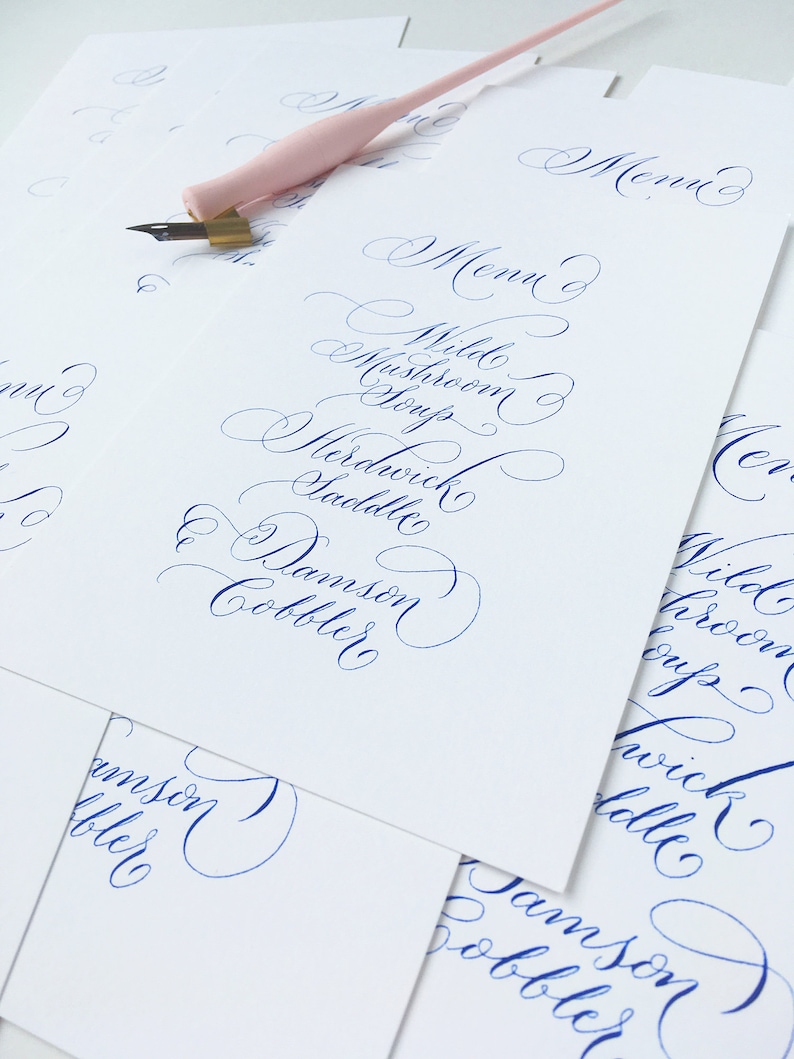 Menu
Menu
Wild
Mushroom
Soup
Herdwick
Saddle
& Damson
Cobbler
Menu
enu
Men
Wild
hroom
oup
wick
ddle
Damson
Cobbler
amson
bbler